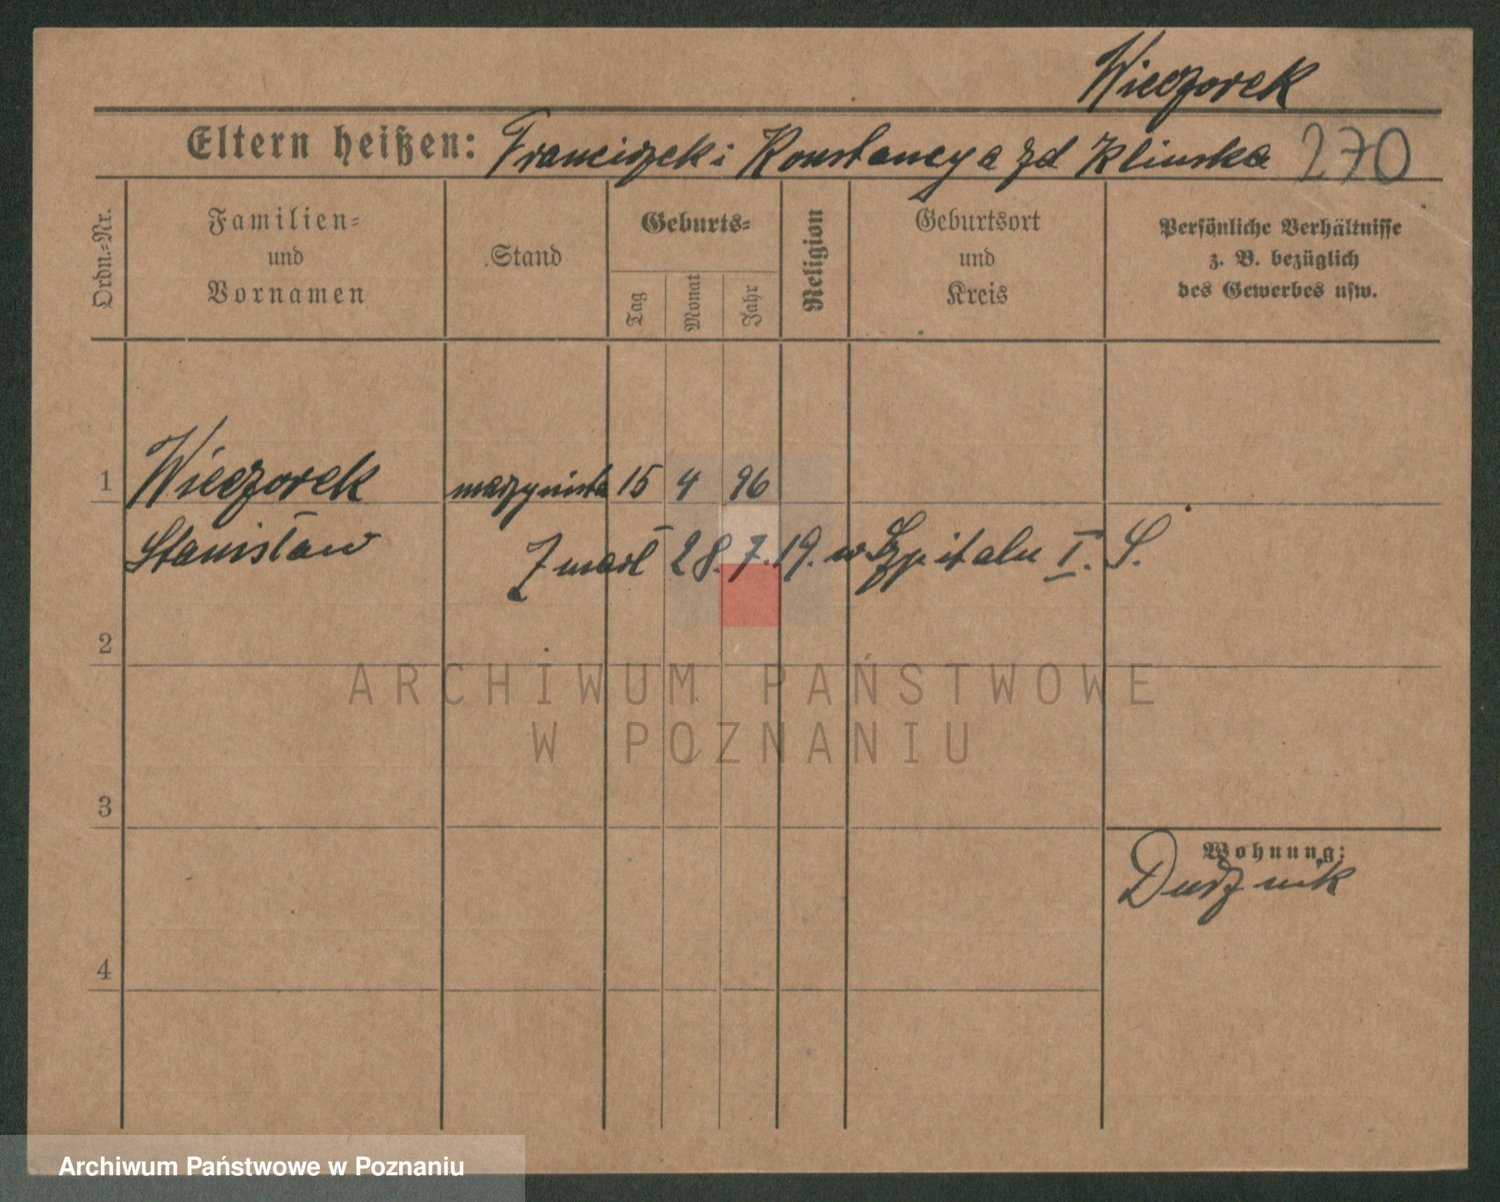 Wieczorek
Eltern heißen: Franciszek i Konstancya zd Klinska 270
Ordn.-Nr.
Familien-
und
Vornamen
Stand
Geburts-
Tag
Monat
Jahr
Religion
Geburtsort
und
Kreis
Persönliche Verhältnisse
z. B. bezüglich
des Gewerbes usw.
1 Wieczorek maszynista 15 4 96
Stanisław Zmarł 28. 7. 19. w Szpitalu I. S.
2
ARCHIWUM PAŃSTWOWE
W POZNANIU
3
Wohnung:
4
Archiwum Państwowe w Poznaniu